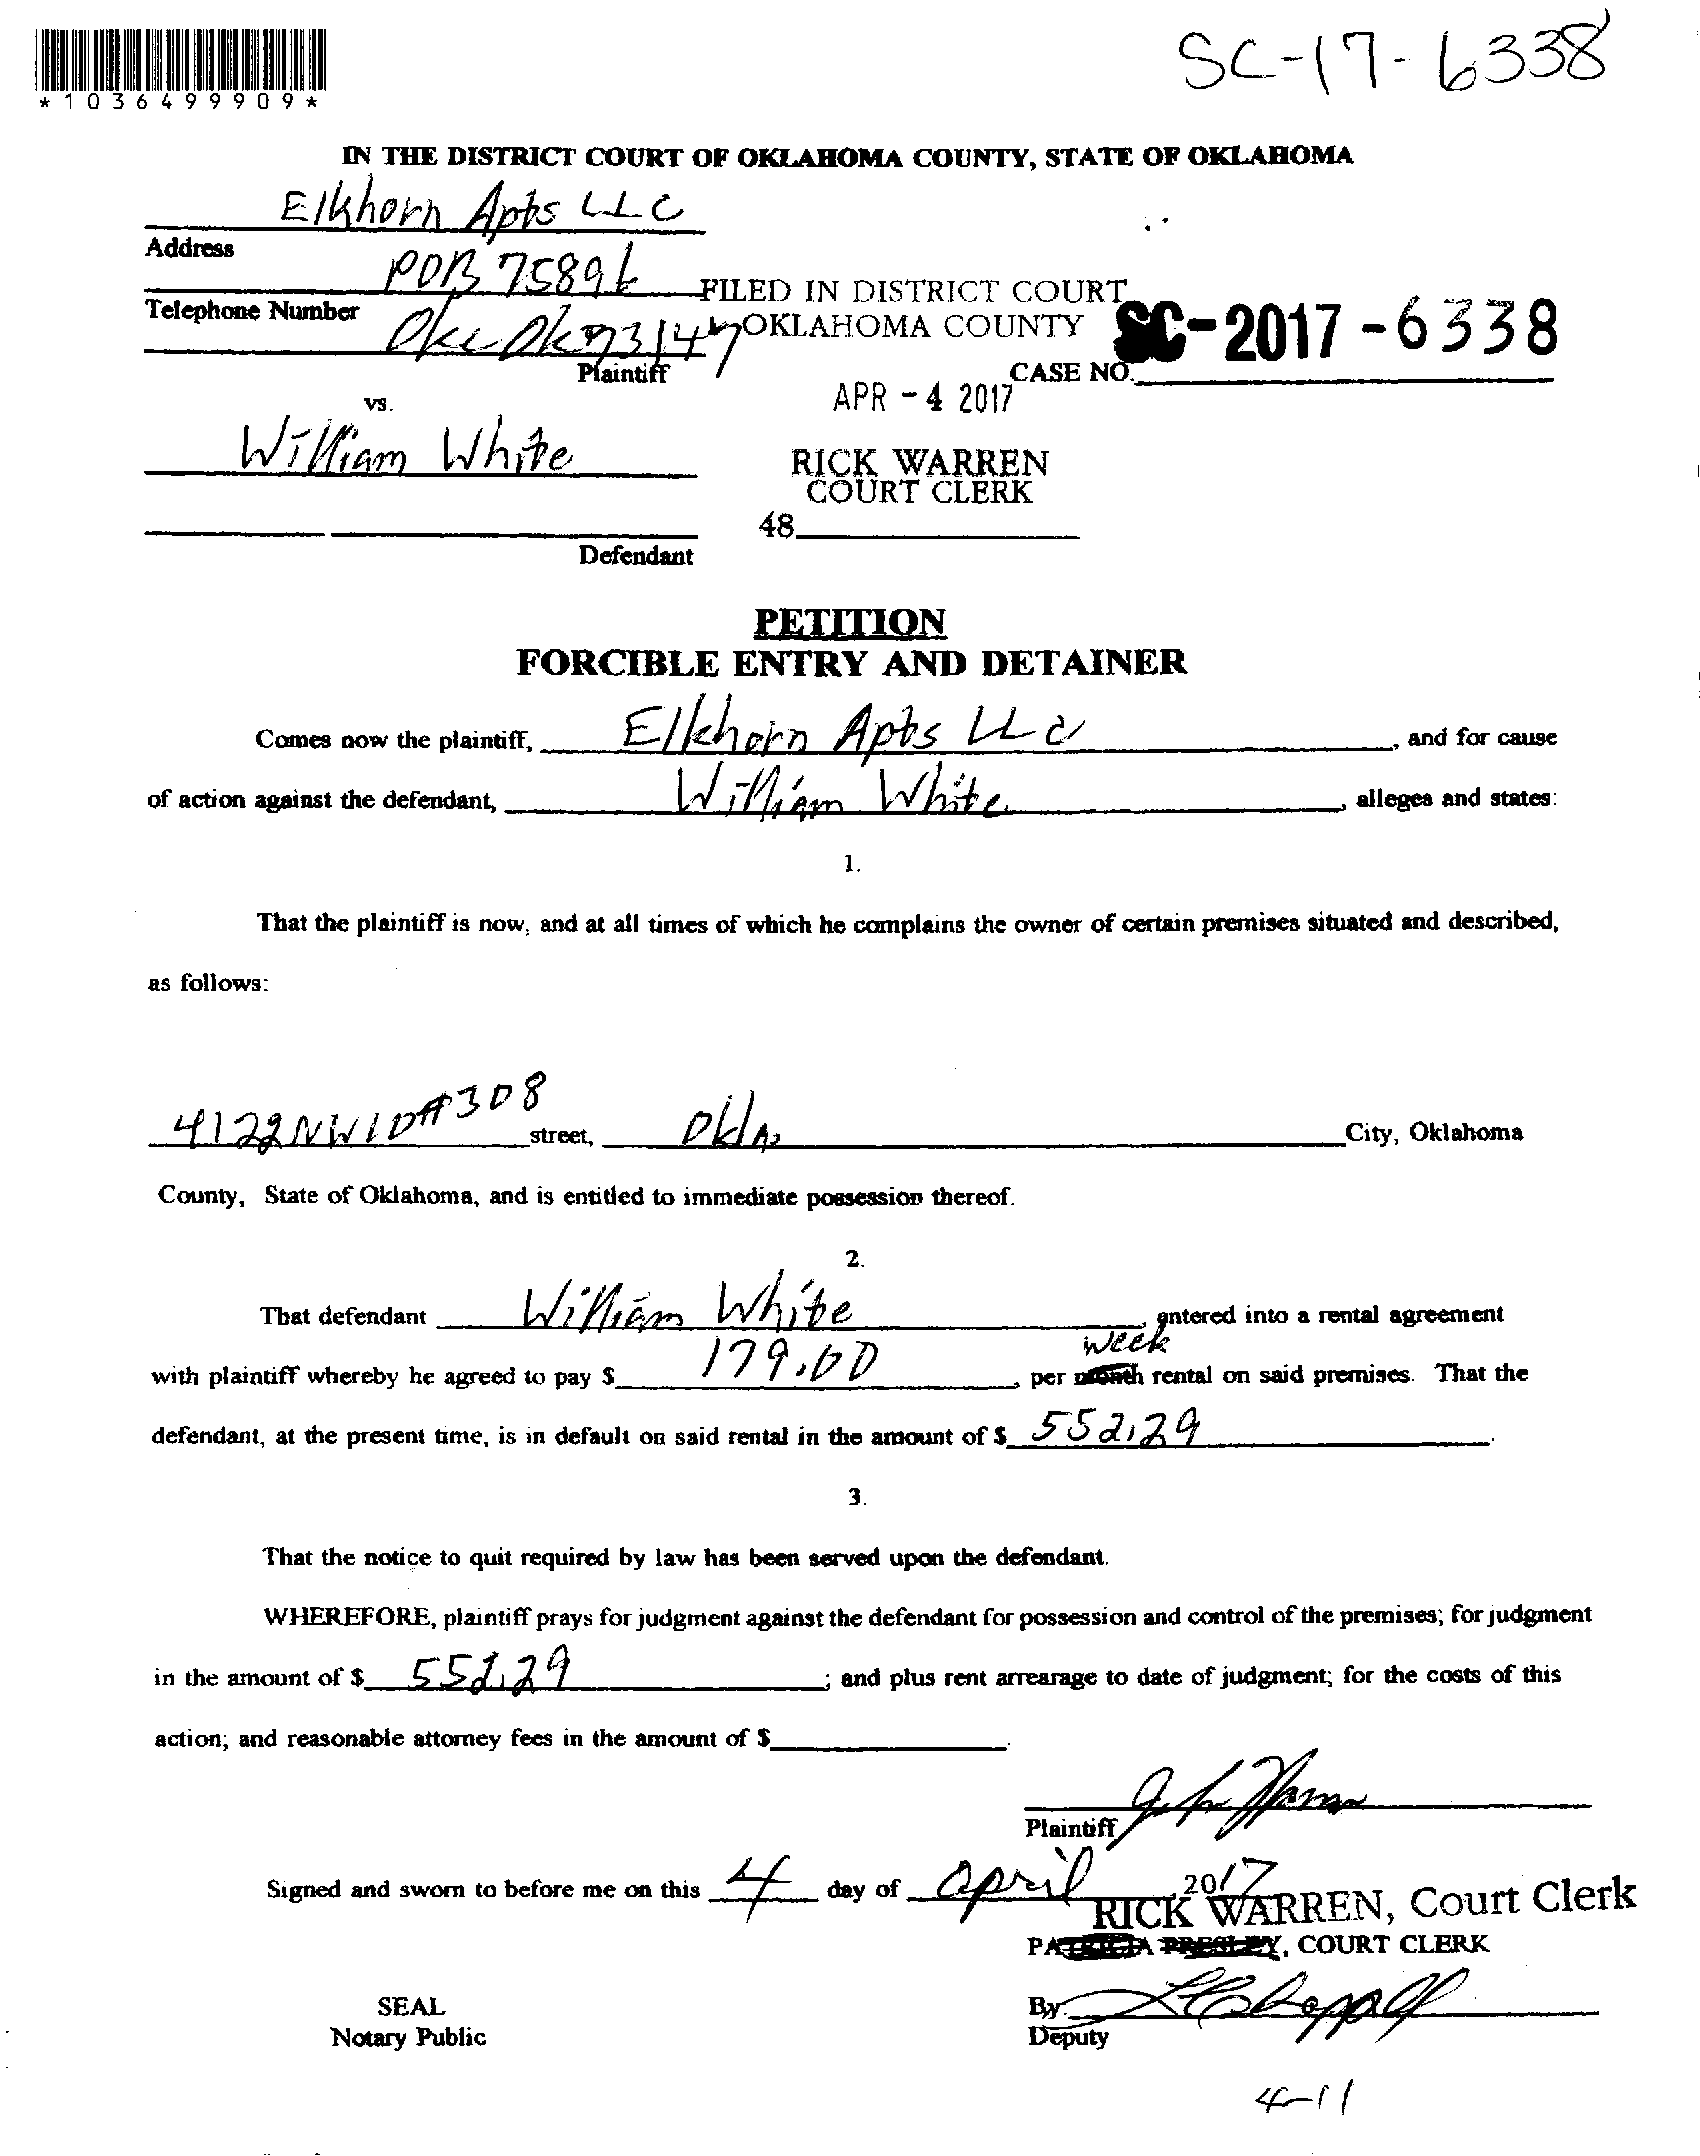 SC-17-6338
*1036499909*
IN THE DISTRICT COURT OF OKLAHOMA COUNTY, STATE OF OKLAHOMA
Elkhorn Apts LLC
Address
POB 75896
Telephone Number
FILED IN DISTRICT COURT
OKLAHOMA COUNTY
Okc Ok 73147
SC-2017-6338
Plaintiff
CASE NO.
APR -4 2017
vs.
William White
RICK WARREN
COURT CLERK
48
Defendant
PETITION
FORCIBLE ENTRY AND DETAINER
Comes now the plaintiff, Elkhorn Apts LLC, and for cause
of action against the defendant, William White, alleges and states:
1.
That the plaintiff is now, and at all times of which he complains the owner of certain premises situated and described,
as follows:
4122 NW 10 #308 street, Okla City, Oklahoma
County, State of Oklahoma, and is entitled to immediate possession thereof.
2.
That defendant William White, entered into a rental agreement
week
with plaintiff whereby he agreed to pay $ 179.00, per month rental on said premises. That the
defendant, at the present time, is in default on said rental in the amount of $ 552.29.
3.
That the notice to quit required by law has been served upon the defendant.
WHEREFORE, plaintiff prays for judgment against the defendant for possession and control of the premises; for judgment
in the amount of $ 552.29; and plus rent arrearage to date of judgment; for the costs of this
action; and reasonable attorney fees in the amount of $
Plaintiff
Signed and sworn to before me on this 4 day of April, 2017
RICK WARREN, Court Clerk
PATRICIA PRESLEY, COURT CLERK
SEAL
By
Notary Public
Deputy
4-11